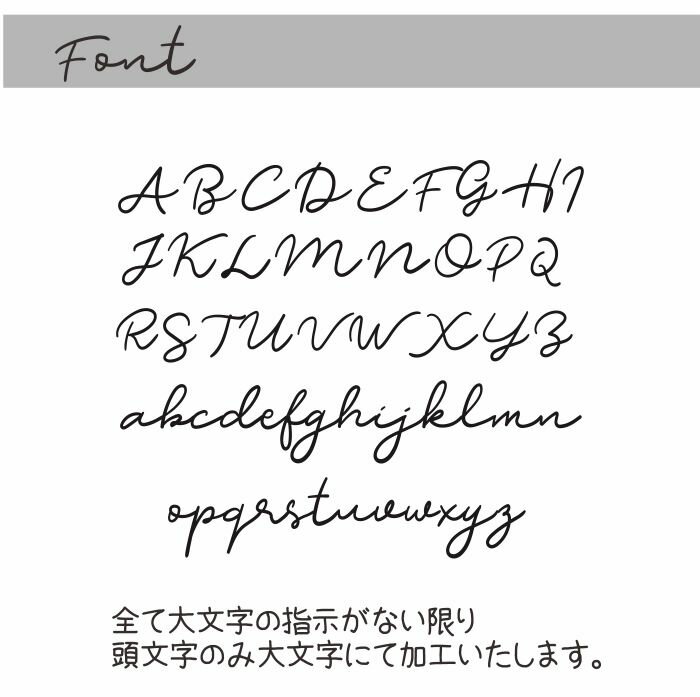 Font
ABCDEFGHI
JKLMNOPQ
RSTUVWXYZ
abcdefghijklmn
opqrstuvwxyz
全て大文字の指示がない限り
頭文字のみ大文字にて加工いたします。